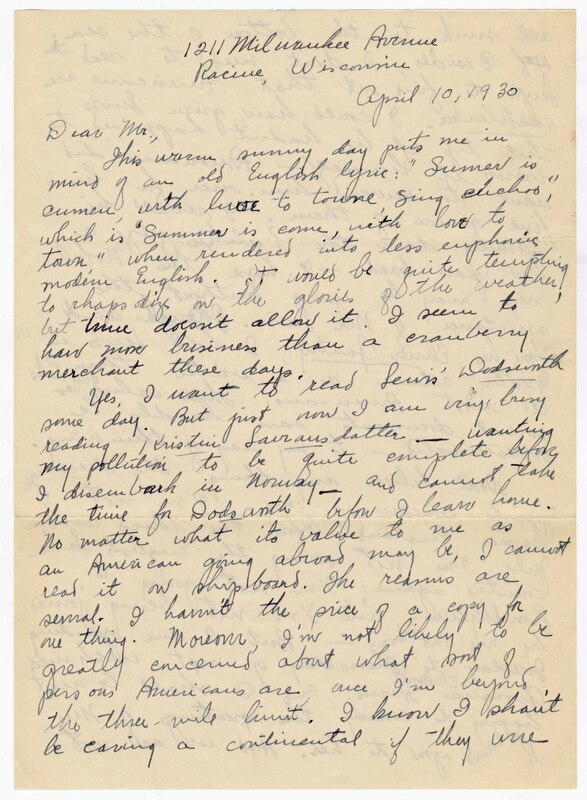 1211 Milwaukee Avenue
Racine, Wisconsin
April 10, 1930
Dear Mr.,
This warm sunny day puts me in
mind of an old English lyric: "Sumer is
cumen, with luve to toune, sing cuchoo",
which is "Summer is come, with love to
town" when rendered into less euphonic
modern English. It would be quite tempting
to rhapsodize on the glories of the weather,
but time doesn't allow it. I seem to
have more business than a cranberry
merchant these days.
Yes, I want to read Lewis' Dodsworth
some day. But just now I am very busy
reading Kristin Lavransdatter — wanting
my pollution to be quite complete before
I disembark in Norway — and cannot take
the time for Dodsworth before I leave home.
No matter what its value to me as
an American going abroad may be, I cannot
read it on shipboard. The reasons are
several. I haven't the price of a copy for
one thing. Moreover, I'm not likely to be
greatly concerned about what sort of
persons Americans are once I'm beyond
the three mile limit. I know I shan't
be caring a continental if they were